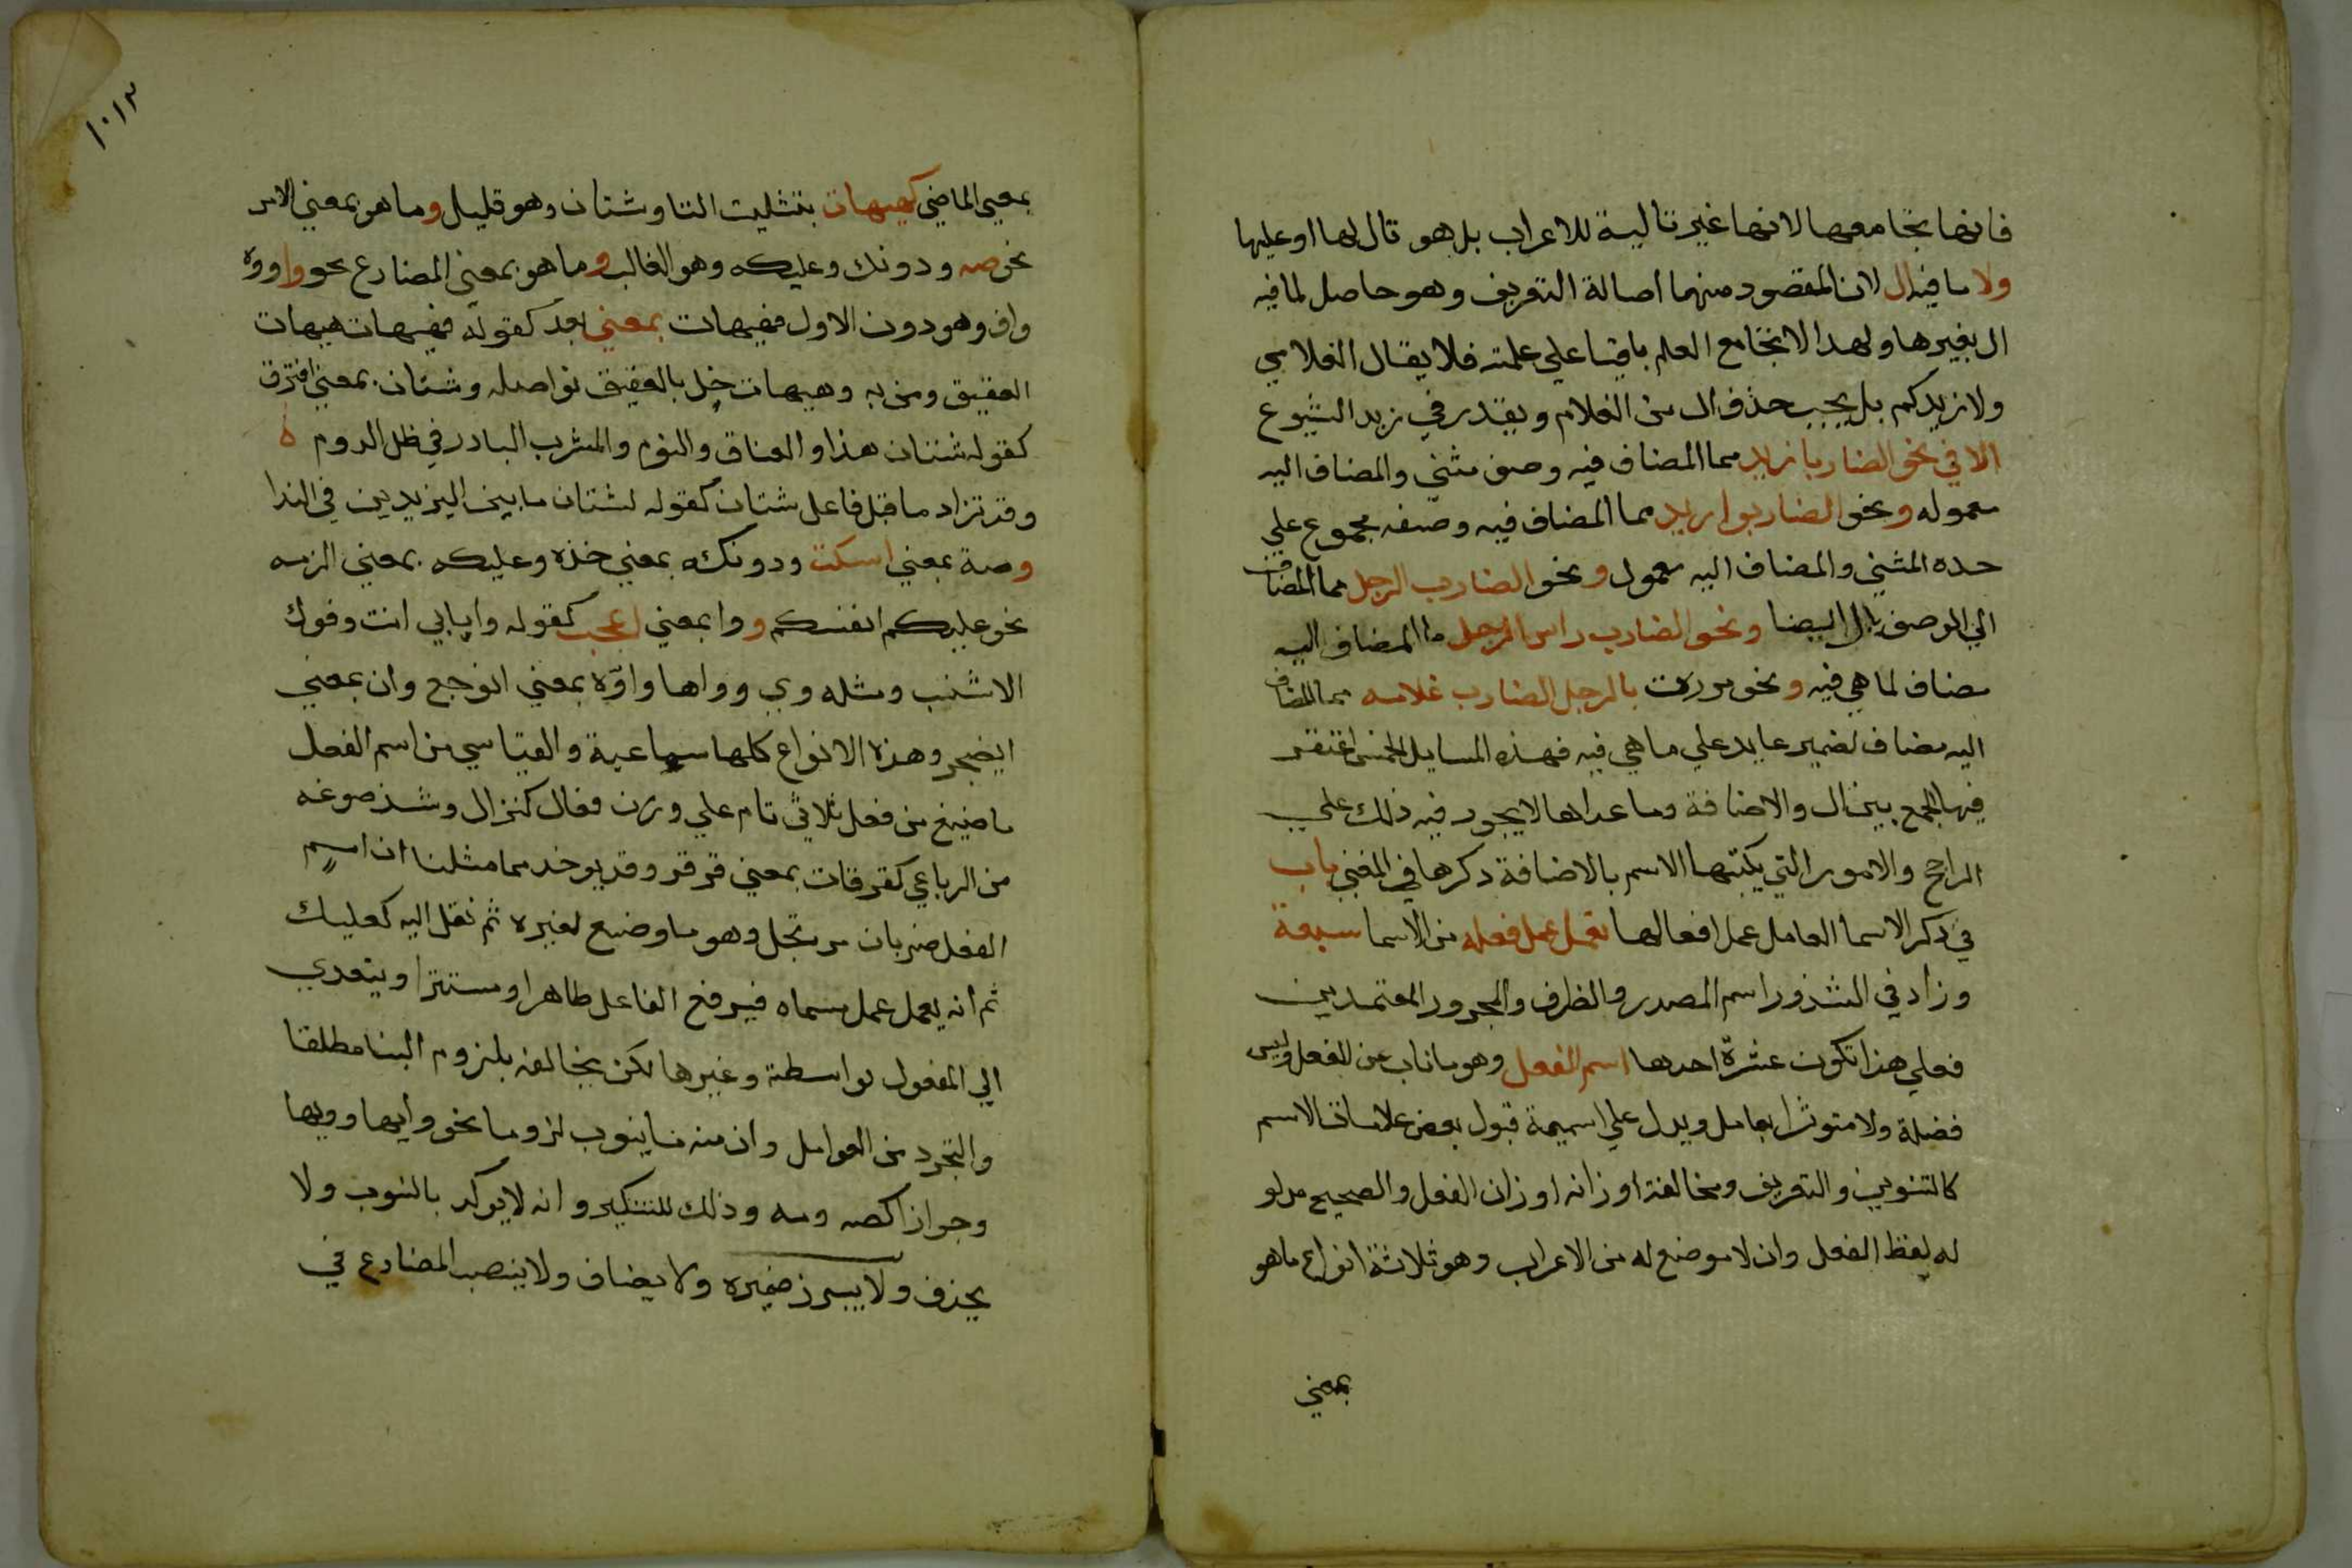 فانها تجامعها لانها غير تالية للاعراب بل هو تال لها او عليها
ولا ما فيه ال لان المقصود منهما اصالة التعريف وهو حاصل لما فيه
ال بغيرها ولهذا لا تجامع العلم باقيا علي علمته فلا يقال الغلامي
ولا زيدكم بل يجب حذف ال من الغلام ويقدر في زيد الشيوع
الا في نحو الضاربا زيد مما المضاف فيه وصف مثني والمضاف اليه
معموله ونحو الضاربوا زيد مما المضاف فيه وصفه مجموع علي
حده المثني والمضاف اليه معمول ونحو الضارب الرجل مما المضاف
الي الوصف بال ايضا ونحو الضارب راس الرجل ما المضاف اليه
مضاف لما هي فيه ونحو مررت بالرجل الضارب غلامه مما المضاف
اليه مضاف لضمير عايد علي ما هي فيه فهذه المسايل الخمس اغتفر
فيها الجمع بين ال والاضافة وما عداها لا يجوز فيه ذلك علي
الراجح والامور التي يكتبها الاسم بالاضافة ذكرها في المغني باب
في ذكر الاسما العامل عمل افعالها تعمل عمل فعله من الاسما سبعة
وزاد في الشذور اسم المصدر والظرف والمجرور المعتمدين
فعلي هذا تكون عشرة احدها اسم الفعل وهو ما ناب عن الفعل وليس
فضلة ولا متوثرا بعامل ويدل علي اسميمة قبول بعض علامات الاسم
كالتنوين والتعريف ومخالفة اوزانه اوزان الفعل والصحيح مدلو
له لفظ الفعل وان لا موضع له من الاعراب وهو ثلاثة انواع ما هو
بمعني
١٠١٣
بمعني الماضي كهيهات بتثليث التا وشتان وهو قليل وما هو بمعني الامر
نحو صه ودونك وعليكه وهو الغالب وما هو بمعني المضارع نحو وا واوه
واف وهو دون الاول فهيهات بمعني بعد كقوله فهيهات هيهات
العقيق ومن به وهيهات خل بالعقيق نواصله وشتان بمعني افترق
كقوله شتان هذا والعناق والنوم والمشرب البادر في ظل الدوم ه
وقد تزاد ما قبل فاعل شتان كقوله لشتان ما بين اليزيدين في الندا
وصة بمعني اسكت ودونكه بمعني خذه وعليكه بمعني الزمه
نحو عليكم انفسكم ووا بمعني اعجب كقوله وا بابي انت وفوك
الاشنب ومثله وي وواها واوّه بمعني اتوجع وان بمعني
اتضجر وهذه الانواع كلها سماعية والقياسي من اسم الفعل
ما صيغ من فعل ثلاثي تام علي وزن فعال كنزال وشذ صوغه
من الرباعي كقرقات بمعني قرقر وقد يوخذ مما مثلنا ان اسم
الفعل ضربان مرتجل وهو ما وضع لغيره ثم نقل اليه كعليك
ثم انه يعمل عمل مسماه فيرفع الفاعل ظاهرا ومستترا ويتعدي
الي المفعول بواسطة وغيرها لكن يخالفه بلزوم البنا مطلقا
والتجرد من العوامل وان منه ما ينوب لزوما نحو وايها وويها
وجوازا كصه ومه وذلك للتنكير وانه لا يوكد بالنوب ولا
يحذف ولا يبرز ضميره ولا يضاف ولا ينصب المضارع في